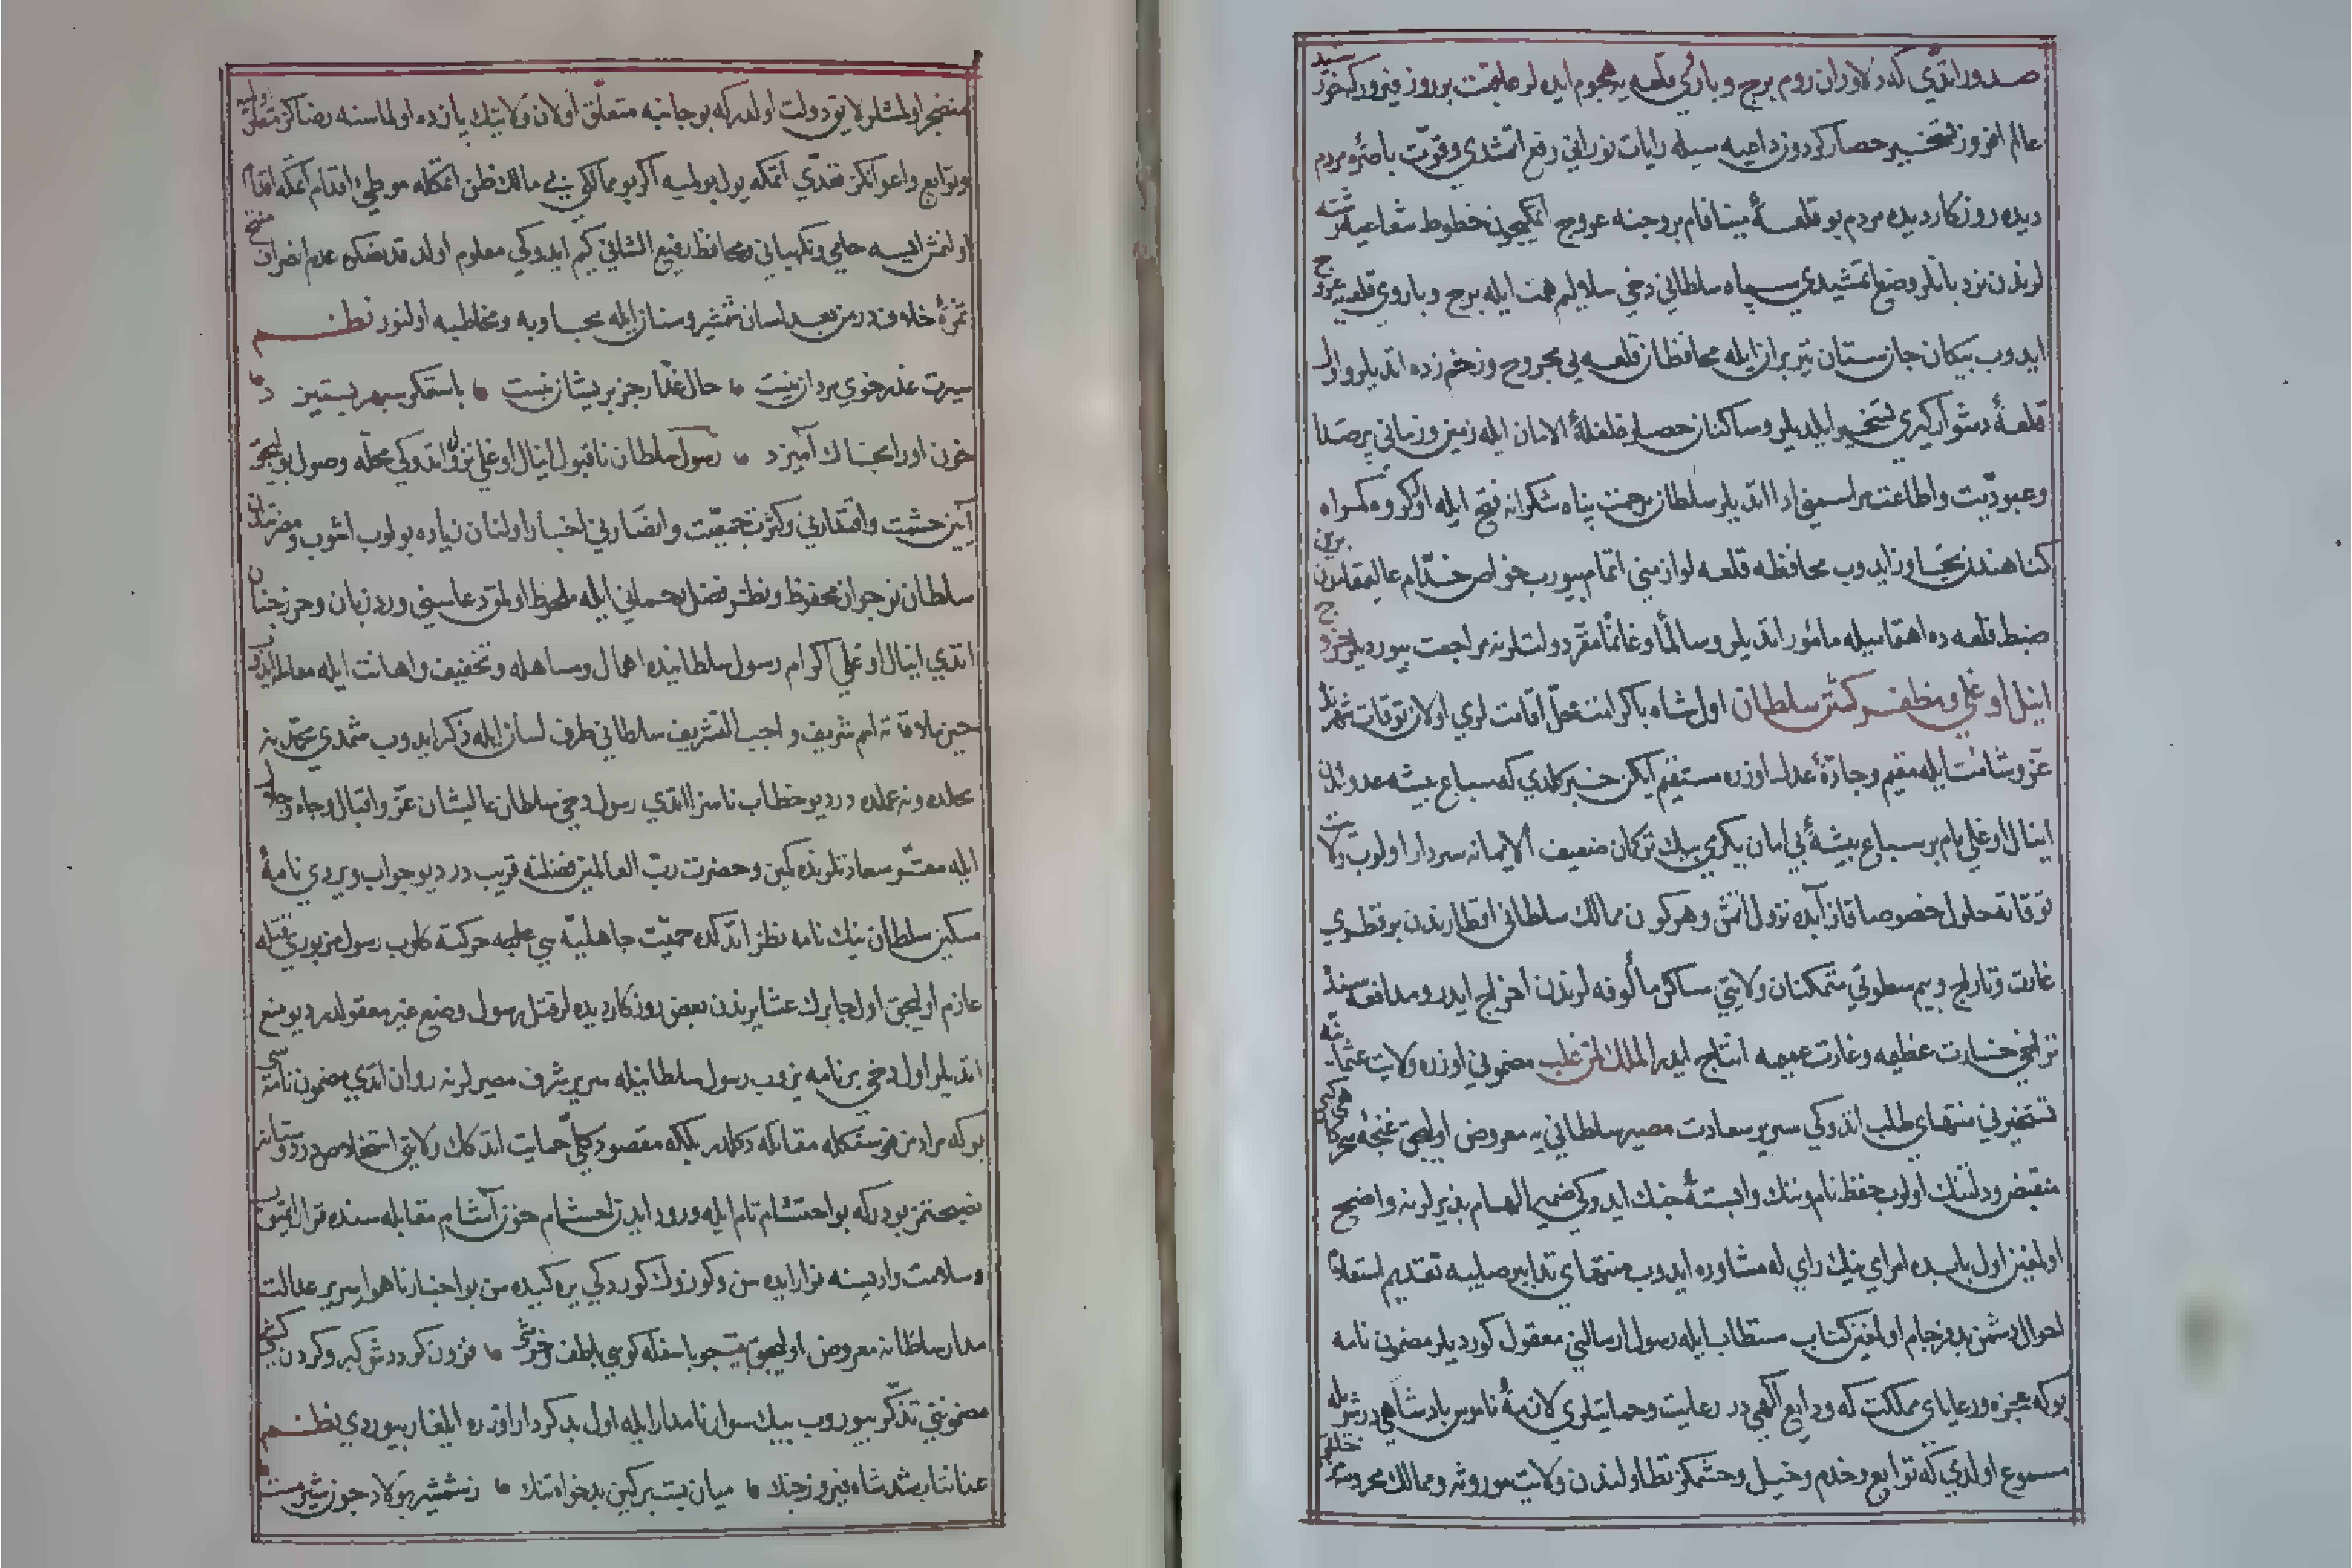 صدور ایتدی که دلاوران روم برج و باروی قلعه یه هجوم ایده لر عاقبت بر روز فیروز که خورشید
عالم افروز تسخیر حصار کردون داعیه سیله رایات نورانی رفع اتمشدی وقوت باصره مردم
دیده روزکار دیده مردم بو قلعۀ مینافام بروجنه عروج ایتمکیچون خطوط شعاعیه رشته
لرندن نردبانلر وضع اتمشیدی سپاه سلطانی دخی سلالیم همت ایله برج و باروی قلعه یه عروج
ایدوب پیکان جان ستان تیر بران ایله محافظان قلعه یی مجروح و زخم زده اتدیلر و اول
قلعۀ دشوارکیری تسخیر ایلدیلر و ساکنان حصار غلغلۀ الامان ایله زمین و زمانی پر صدا
وعبودیت و اطاعت مراسمنی ادا اتدیلر سلطان مرحمت پناه شکرانه فتح ایله اول کروه کمراه
کناهندن تجاوز ایدوب محافظه قلعه لوازمنی اتمام بیورب خواص خدام عالیمقامدن برین
ضبط قلعه ده اهتمامیله مأمور اتدیلر و سالماً وغانماً مقر دولتلرنه مراجعت بیوردیلر خروج
اینال اوغلی و مظفر کشتن سلطان اول شاه پاک امنیت محل اقامت لری اولان توقات شهرنده
عز و شامت ایله مقیم و جادۀ عدل اوزره مستقیم ایکن خبر کلدی که سباع بیشه عدواندن
اینال اوغلی نام بر سباع بیشۀ بی امان یکرمی بیك ترکمان ضعیف الایمانه سردار اولوب ولایت
توقاته حلول خصوصا قازآباده نزول اتمش و هر کون ممالك سلطانی اقطارندن بر قطری
غارت و تاراج و بیم سطوتی متمکنان ولایتی مساکن مألوفه لرندن اخراج ایدر و مدافعه سنده
تراخی خسارت عظیمه و غارت عمیمه انتاج ایدر الملك لمن غلب مضمونی اوزره ولایت عثمانیه
تسخیرنی منتهای طلب اتدوکی سریر سعادت مصیر سلطانی یه معروض اولیجق غنچه
منقبض و دلتنك اولوب حفظ ناموسنك وابستۀ جنك ایدوکی ضمیر الهام پذیرلرنه واضح
اولمغین اول بابده امرای نیك رای له مشاوره ایدوب منتهای تدابیر صایبه تقدیم استعلام
احوال دشمن بد فرجام اولمغین کتاب مستطاب ایله رسول ارسالنی معقول کوردیلر مضمون نامه
بوکه عجزه ورعایای مملکت که ودایع الهی در رعایت و حمایتلری لازمۀ ناموس پادشاهی در شویله
مسموع اولدی که توابع و خدم و خیل و حشمکز تطاولندن ولایت موروثه و ممالك محروسه مز خلقی
منضجر اولمشلر لایق دولت اولدر که بو جانبه متعلق اولان ولایتك پازده اولماسنه رضاکز متعلق اولمیه
وتوابع و اعوانکز تعدی اتمکه یول بولمیه اکر بو ممالکی بی مالك ظن اتمکله موطئ اقدام اتمکه اقدام
اولنمش ایسه حامی ونکهبانی و محافظ رفیع الشانی کیم ایدوکی معلوم اولدقدنصکره عدم انصراف منتج
ثمرۀ خلافدر من بعد لسان شمشیر و سنان ایله مجاوبه و مخاطبه اولنور نظم
سیرت غدر خوی مردان نیست ؞ حال غدار جز پریشان نیست ؞ با ستمکر سپهر بستیزد
خون اورا بخاك آمیزد ؞ رسول سلطان ناقبول اینال اوغلی نزول اتدوکی محله وصول بولیجق
آیین حشمت و اقتدارنی و کثرت جمعیت و انصارنی اخبار اولنان زیاده بولوب آشوب و مضرتندن
سلطان نوجوان محفوظ و نظر فضل رحمانی ایله ملحوظ اولمق دعاسنی ورد زبان و حرز جنان
اتدی اینال اوغلی اکرام رسول سلطانیده اهمال و مساهله و تخفیف و اهانت ایله معامله ایدوب
حین ملاقاته اسم شریف و اجب التشریف سلطانی طرف لسان ایله ذکر ایدوب شمدی محمد نه
محلده ونه عملده در دیو خطاب ناسزا اتدی رسول دخی سلطان عالیشان عز و اقبال و جاه و جلال
ایله مقر سعادتلرنده مکین و حضرت رب العالمین فضلنه قریب در دیو جواب ویردی نامۀ
مسکین سلطان نیك نامه نظر اتدکده حمیت جاهلیه سی حرکته کلوب رسول مزبوری قتله
عازم اولیجق اول جابرك عشایرندن بعض روزکار دیده لر قتل رسول وضع غیر معقولدر دیو منع
اتدیلر اول دخی بر نامه یزوب رسول سلطانیله سریر شرف مصیرلرنه روان اتدی مضمون نامه سی
بوکه مراد من سنکله مقابله دکلدر بلکه مقصود کلی حمایت اتدکك ولایتی استخلاصدر دوستانه
نصیحتمز بودر که بو احتشام تام ایله ورود ایدن لحشام خون آشام مقابله سنده قرار ایتمیوب
وسلامت وادیسنه فرار ایده سن و کوزوك کوردکی یره کیده سن بو اخبار ناهموار سریر عدالت
مدار سلطانه معروض اولیجق ؞ چو با سفله کویی بلطف و خوشی ؞ فزون کرددش کبر و کردن کشی
مضمونی تذکر بیوروب بیك سوار نامدار ایله اول بد کردار اوزره ایلغار بیوردی نظم
عنانتاب شد شاه فیروز جنك ؞ میان بست بر کین بدخواه تنك ؞ ز شمشیر پولاد چون شیر مست